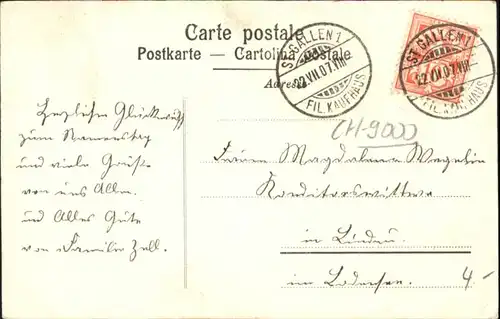 Carte postale
Postkarte — Cartolina postale
Adresse
ST. GALLEN 1
22.VII.07.VIII
FIL. KAUFHAUS
ST. GALLEN 1
22.VII.07.VIII
FIL. KAUFHAUS
CH-9000
Herzlichen Glückwunsch
zum Namenstag
und viele Grüsse
von uns Allen.
und Alles Gute
von Familie Zell.
Frauen Magdalena Wegelin
Konditorswittwe
in Lindau.
im Bodensee.
4.-